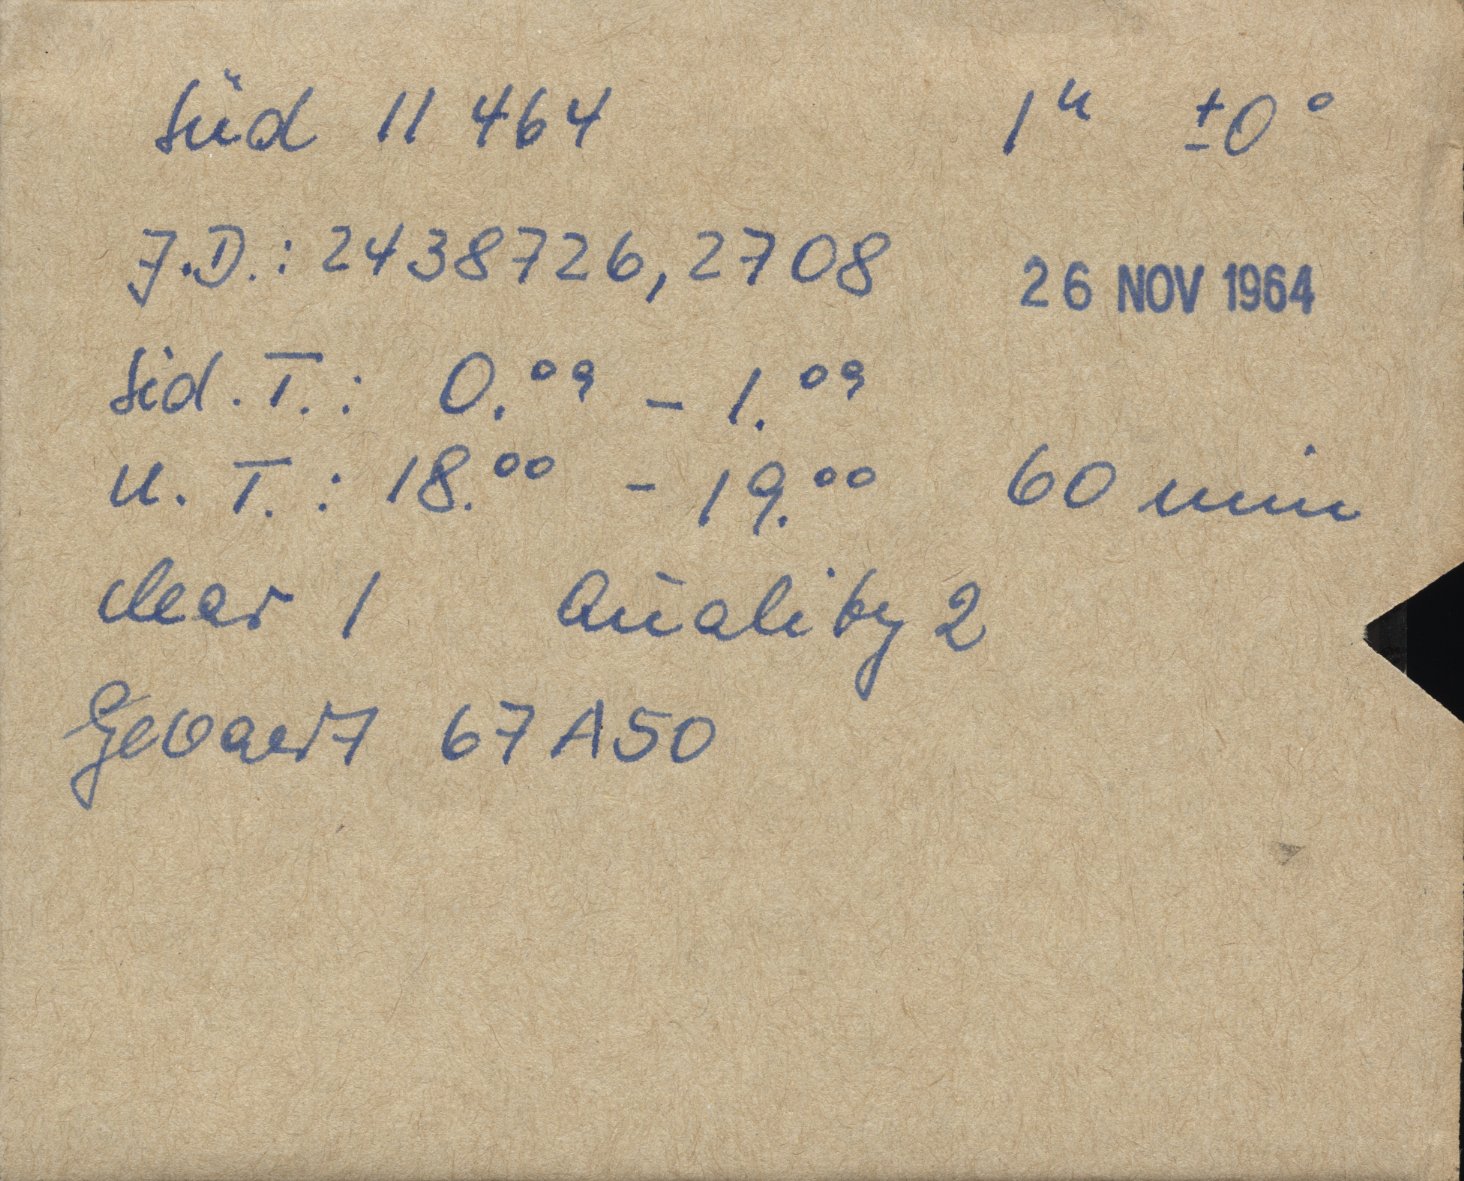 Süd 11 464 1ʰ ±0°
J.D.: 2438726,2708 26 NOV 1964
Sid. T.: 0.⁰⁹ – 1.⁰⁹
U. T.: 18.⁰⁰ – 19.⁰⁰ 60 min
clear 1 Quality 2
Gevaert 67A50